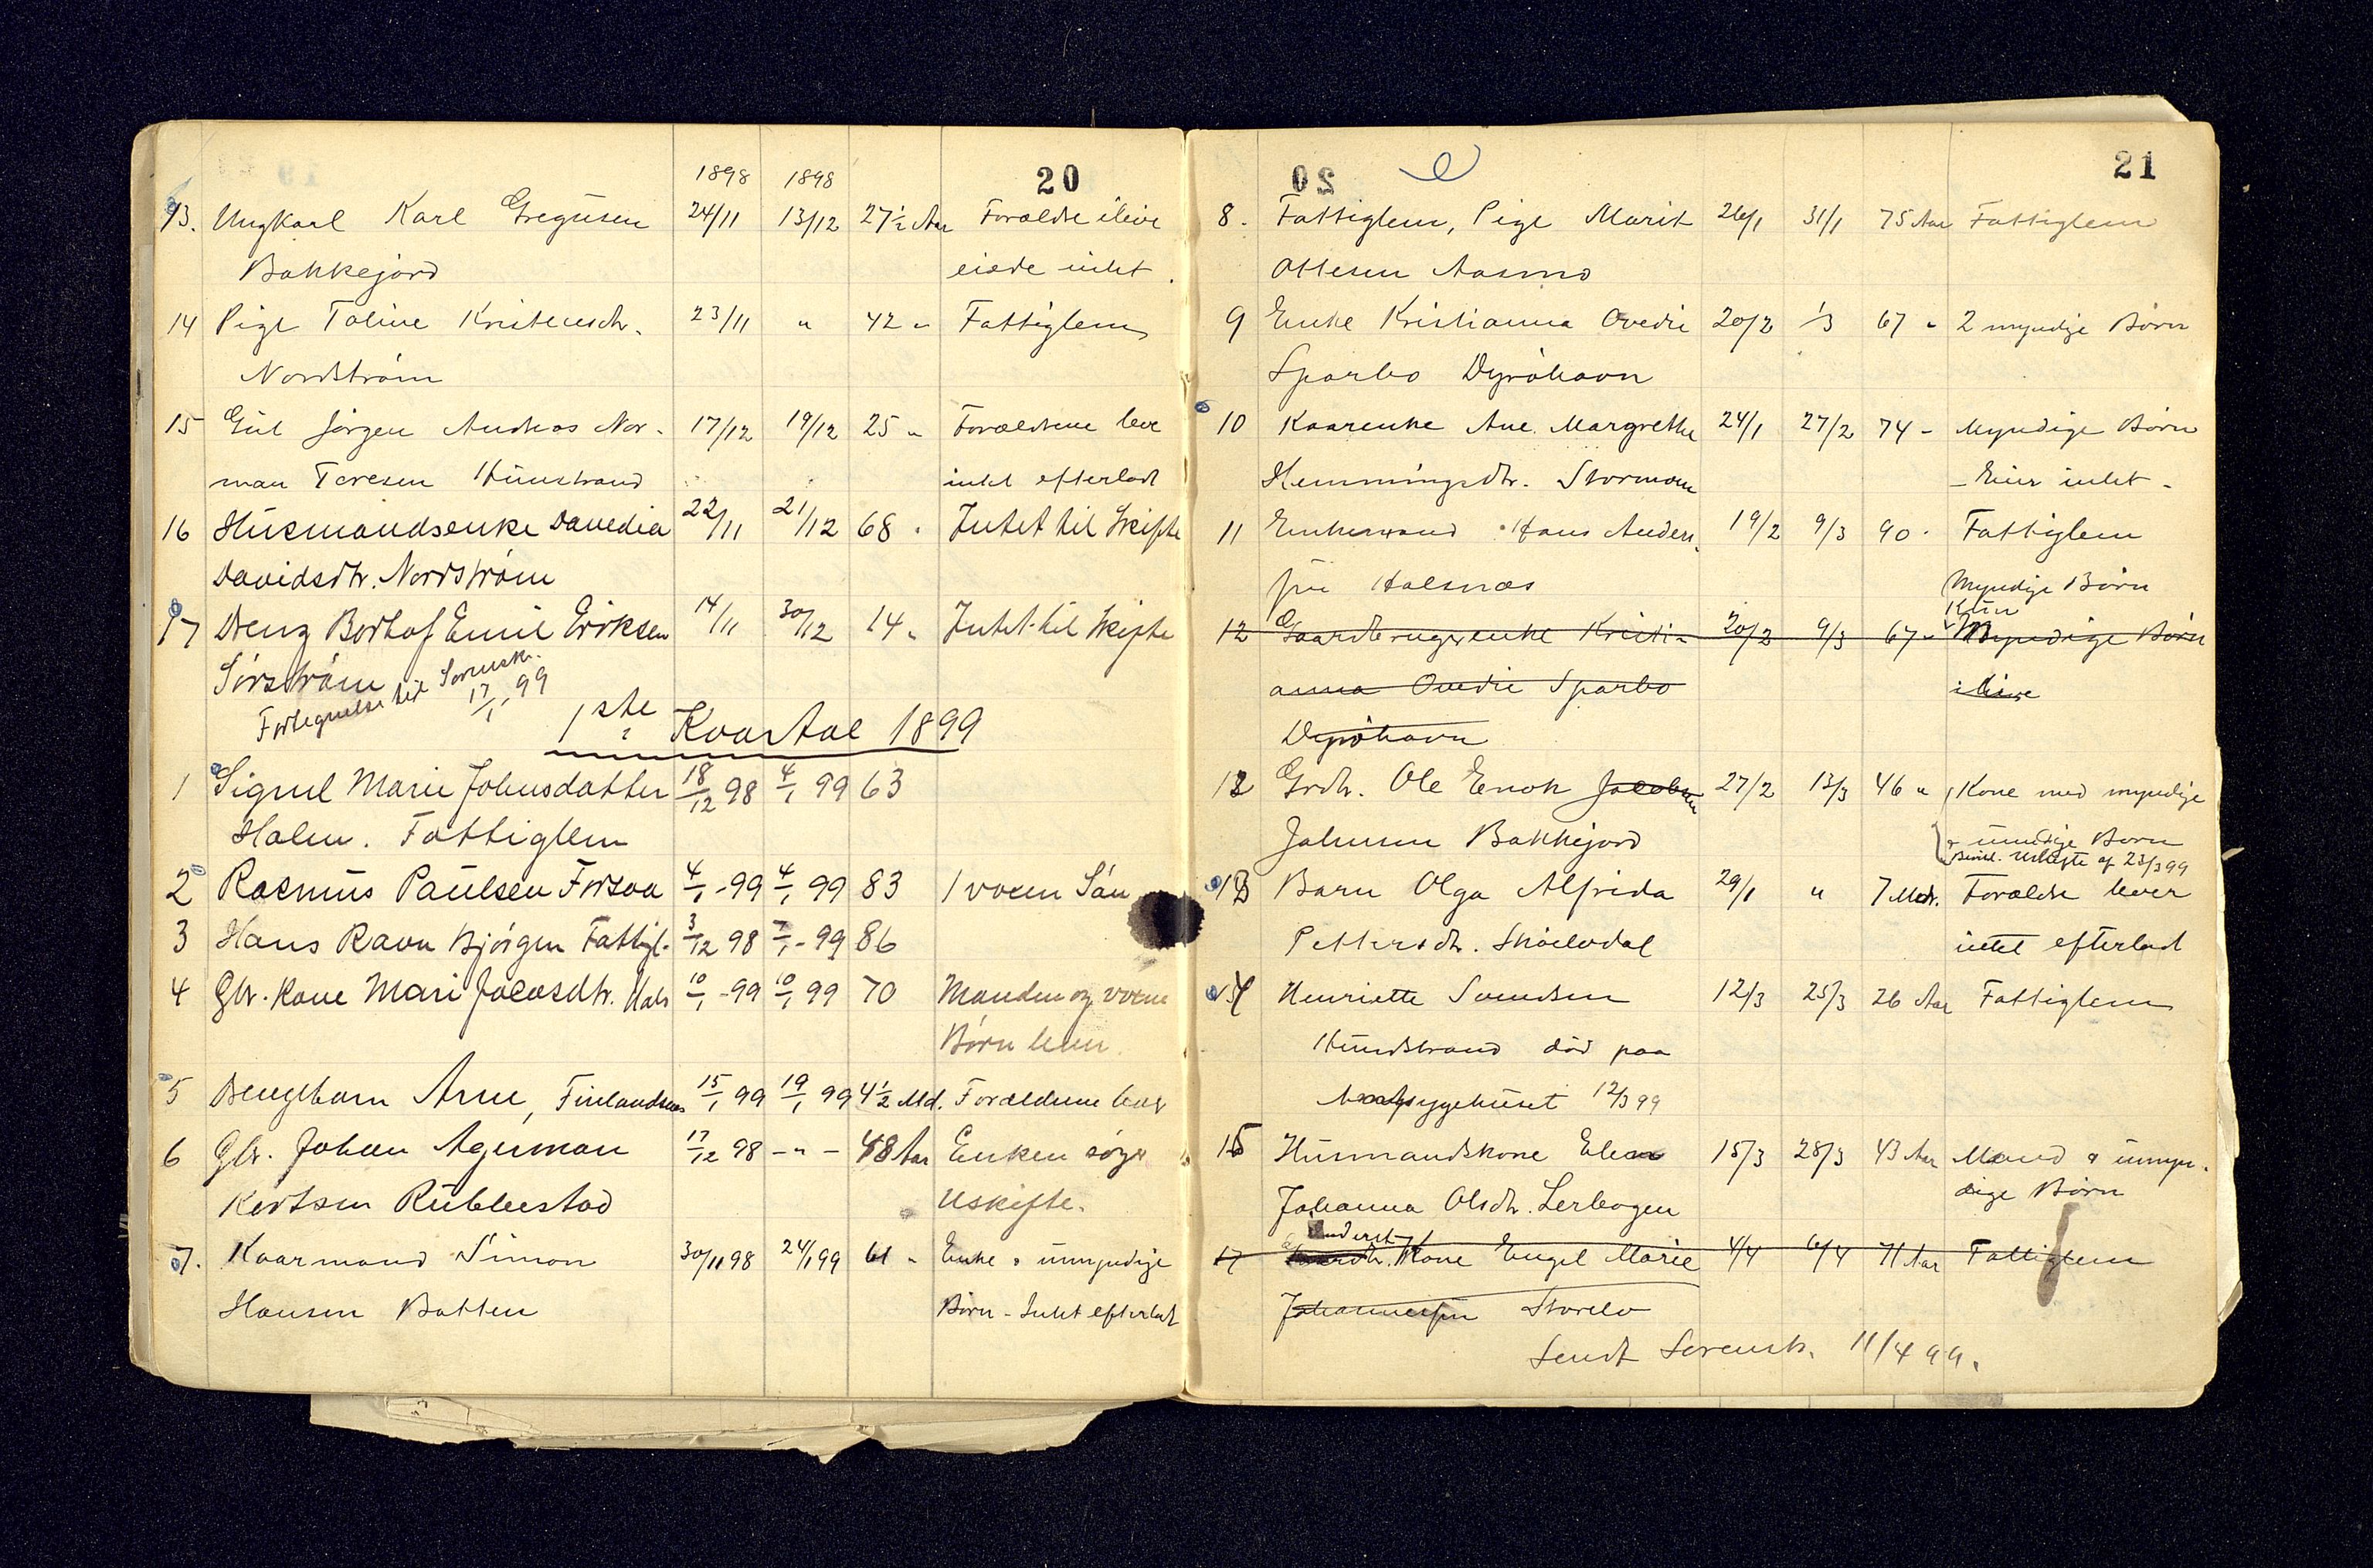 1898 1898 20
13. Ungkarl Karl Gregusen 24/11 13/12 27 1/2 Aar Forældre ilive
Bakkejord eiede intet.
14 Pige Taline Kristensdtr. 23/11 " 42 " Fattiglem
Nordstrøm
15 Gut Jørgen Andreas Nor- 17/12 19/12 25 " Forældrene lever
man Toresen Hundstrand intet efterladt
16 Husmandsenke Danedia 22/11 21/12 68 " Intet til Skifte
Davidsdtr. Nordstrøm
17 Dreng Borthof Emil Eriksen 14/11 30/12 14 " Intet til Skifte
Sørstrøm
Fortegnelse til Sorensk. 17/1 99
1ste Kvartal 1899
1 Signel Marie Johnsdatter 18/12 98 4/1 99 63
Holm. Fattiglem
2 Rasmus Paulsen Forsaa 4/1-99 4/1 99 83 1 voxen Søn
3 Hans Ravn Bjørgen Fattigl. 3/12 98 7/1-99 86
4 Gbr. Kone Mari Jacosdtr. Hals 10/1-99 10/1 99 70 Manden og voxne
Børn lever.
5 Drengebarn Arne, Finlandsnes 15/1 99 19/1 99 4 1/2 Md. Forældrene lever
6 Gbr. Johan Agerman 17/12 98 - " - 48 Aar Enken søger
Kertsen Rubbestad Uskifte.
7. Kaarmand Simon 30/11 98 24/1 99 61 " Enke & umyndige
Hansen Botten Børn - Intet efterladt
20 21
8. Fattiglem, Pige Marit 26/1 31/1 75 Aar Fattiglem
Ottesen Aasmo
9 Enke Kristianna Ovedie 20/2 1/3 67 " 2 myndige Børn
Sparbo Dyröhavn
10 Kaarenke Ane Margrethe 24/1 27/2 74 - Myndige Børn
Hemmingsdtr. Stormoen - Eier intet -
11 Enkemand Hans Anders. 19/2 9/3 90 " Fattiglem
fra Halsnæs Myndige Børn
Kun
12 Gaardbrugerenke Kristi- 20/2 9/3 67 " Myndige Børn
anna Ovedie Sparbo ilive
Dyröhavn
12 Grdbr. Ole Enok Jacobsen 27/2 13/3 46 " Kone med myndige
Johnsen Bakkejord & umndige Born
Bevil. Uskifte af 23/3 99
13 Barn Olga Alfrida 29/1 " 7 Mdr. Forældre lever
Pettersdtr. Skøelvdal intet efterladt
14 Henriette Svendsen 12/3 25/3 26 Aar Fattiglem
Hundstrand död paa
sygehuset 12/3 99
15 Husmandskone Elen 15/3 28/3 43 Aar Mand & umyn-
Johanna Olsdtr. Lerbogen dige Børn
Inderst
17 Kone Engel Marie 4/4 6/4 71 Aar Fattiglem
Johannesen Storelv
Sendt Sorensk. 11/4 99.